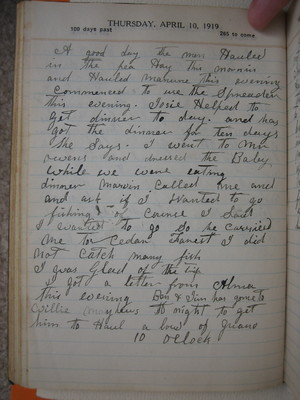 THURSDAY, APRIL 10, 1919
100 days past 265 to come
A good day the men Hauled
in the pea Hay this mornin
and Hauled manure this evening
Commenced to use the Spreader
this evening. Josie Helped to
get dinner to day. and has
got the dinner for ten days
She Says. I went to Mrs
owens and dressed the Baby
while we were eating
dinner Marvin Called me and
and ast if I wanted to go
fishing of Course I Said
I wanted to go So he carried
me to Cedar I did
not Catch many fish
I was Glad of the tip
I got a letter from Alma
this evening Ben & Jim has gone to
Willie to night to get
him to Haul a low of guano
10 oclock